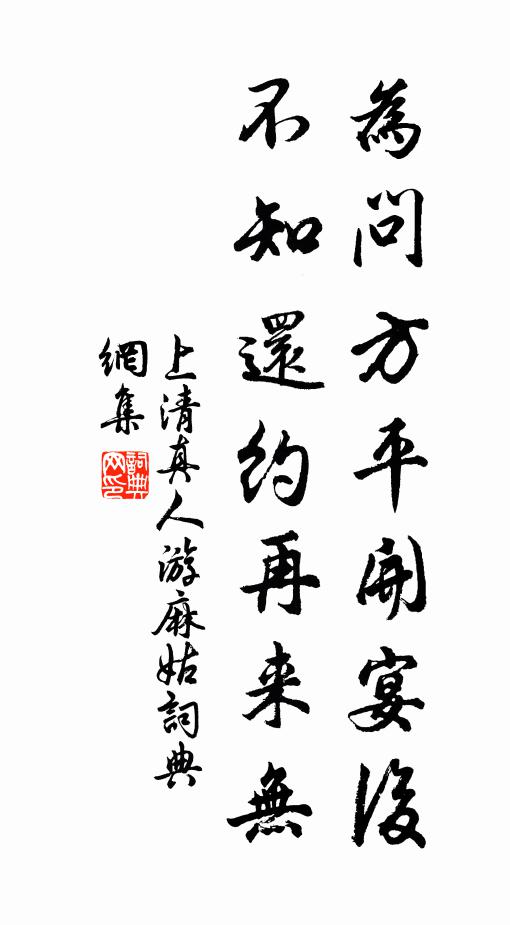 為問方平開宴後
不知還約再来無
上清真人游麻姑詞典
網集
詞典
网印